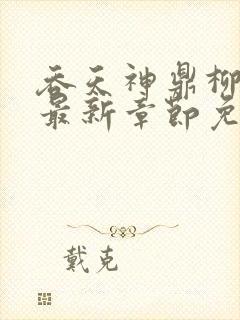 吞天神鼎柳
最新章节免
戴克